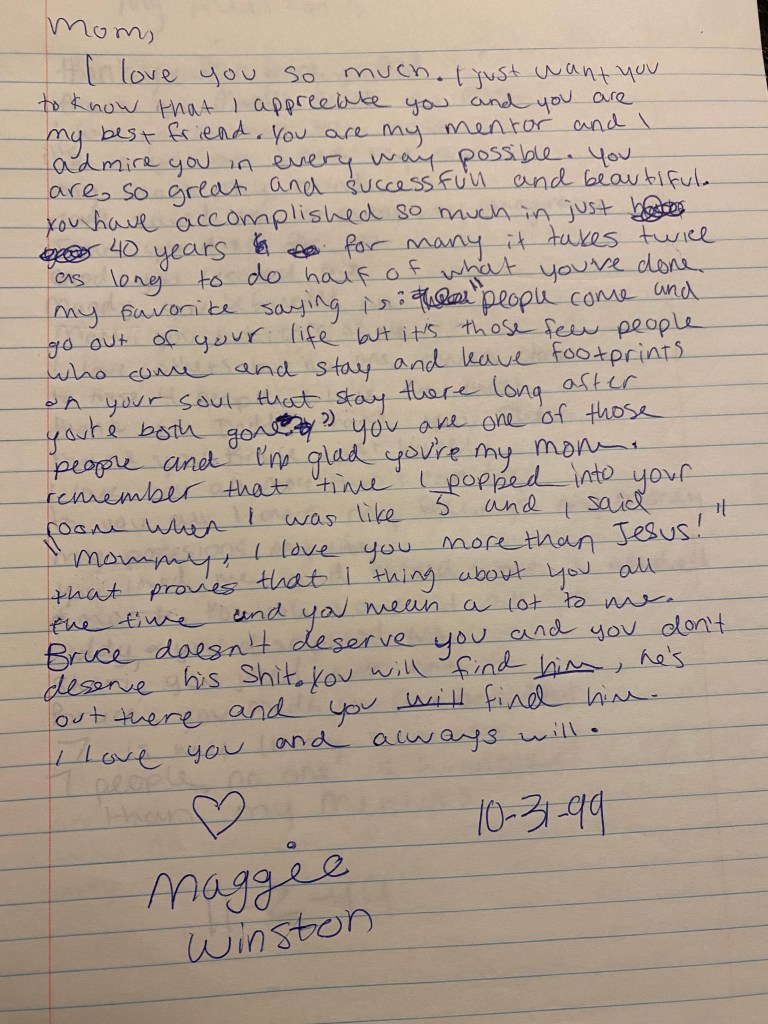 Mom,
I love you so much. I just want you
to know that I appreciate you and you are
my best friend. You are my mentor and I
admire you in every way possible. You
are, so great and successfull and beautiful.
You have accomplished so much in just
40 years & for many it takes twice
as long to do half of what you've done.
my favorite saying is: "people come and
go out of your life but it's those few people
who come and stay and leave footprints
on your soul that stay there long after
you're both gone" you are one of those
people and I'm glad you're my mom.
remember that time I popped into your
room when I was like 5 and I said
"mommy, I love you more than Jesus!"
that proves that I thing about you all
the time and you mean a lot to me.
Bruce doesn't deserve you and you don't
deserve his shit. You will find him, he's
out there and you will find him.
I love you and always will.
♡ 10-31-99
Maggie
Winston